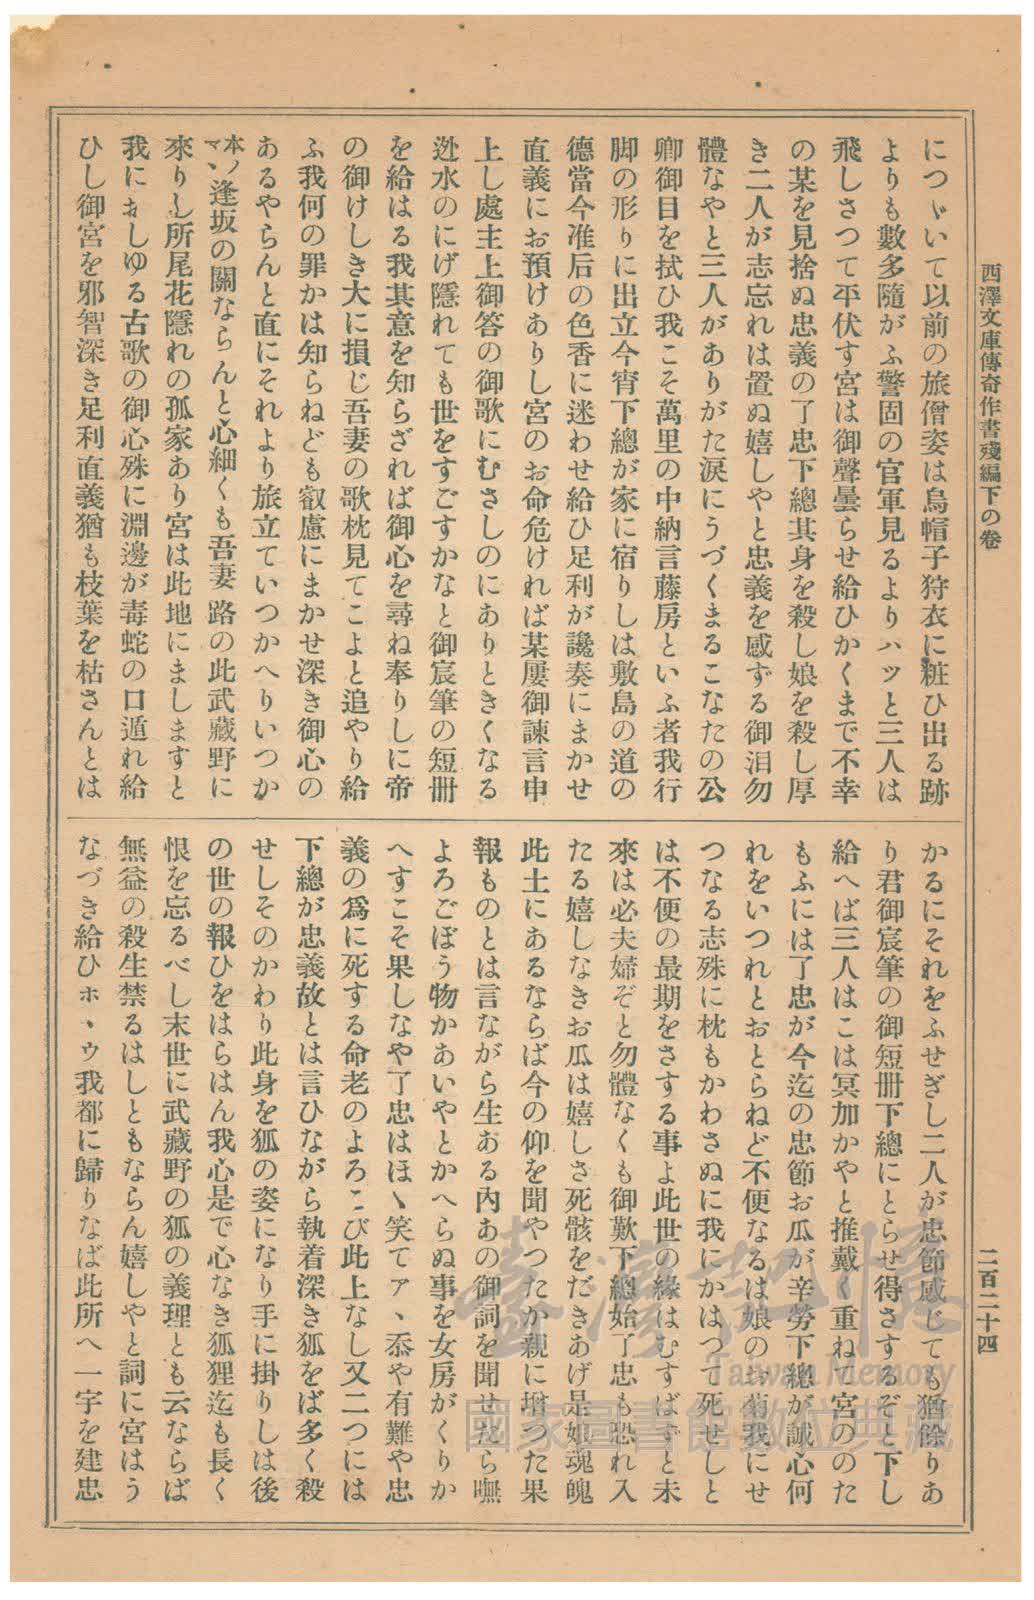 西澤文庫傳奇作書殘編下の卷
二百二十四
につゞいて以前の旅僧姿は烏帽子狩衣に粧ひ出る跡
よりも數多隨がふ警固の官軍見るよりハッと三人は
飛しさつて平伏す宮は御聲曇らせ給ひかくまで不幸
の某を見捨ぬ忠義の了忠下總其身を殺し娘を殺し厚
き二人が志忘れは置ぬ嬉しやと忠義を感ずる御泪勿
體なやと三人がありがた涙にうづくまるこなたの公
卿御目を拭ひ我こそ萬里の中納言藤房といふ者我行
脚の形りに出立今宵下總が家に宿りしは敷島の道の
德當今准后の色香に迷わせ給ひ足利が讒奏にまかせ
直義にお預けありし宮のお命危ければ某屢御諫言申
上し處主上御答の御歌にむさしのにありときくなる
迯水のにげ隱れても世をすごすかなと御宸筆の短冊
を給はる我其意を知らざれば御心を尋ね奉りしに帝
の御けしき大に損じ吾妻の歌枕見てこよと追やり給
ふ我何の罪かは知らねども叡慮にまかせ深き御心の
あるやらんと直にそれより旅立ていつかへりいつか
本ノマヽ逢坂の關ならんと心細くも吾妻路の此武藏野に
來りし所尾花隱れの孤家あり宮は此地にましますと
我におしゆる古歌の御心殊に淵邊が毒蛇の口遁れ給
ひし御宮を邪智深き足利直義猶も枝葉を枯さんとは
かるにそれをふせぎし二人が忠節感じても猶餘りあ
り君御宸筆の御短冊下總にとらせ得さするぞと下し
給へば三人はこは冥加かやと推戴く重ねて宮ののた
もふには了忠が今迄の忠節お瓜が辛勞下總が誠心何
れをいつれとおとらねど不便なるは娘のお菊我にせ
つなる志殊に枕もかわさぬに我にかはつて死せしと
は不便の最期をさする事よ此世の緣はむすばずと未
來は必夫婦ぞと勿體なくも御歎下總始了忠も恐れ入
たる嬉しなきお瓜は嬉しさ死骸をだきあげ是娘魂魄
此土にあるならば今の仰を聞やつたか親に增つた果
報ものとは言ながら生ある內あの御詞を聞せたら嘸
よろこぼう物かあいやとかへらぬ事を女房がくりか
へすこそ果しなや了忠はほゝ笑てアヽ忝や有難や忠
義の爲に死する命老のよろこび此上なし又二つには
下總が忠義故とは言ひながら執着深き狐をば多く殺
せしそのかわり此身を狐の姿になり手に掛りしは後
の世の報ひをはらはん我心是で心なき狐狸迄も長く
恨を忘るべし末世に武藏野の狐の義理とも云ならば
無益の殺生禁るはしともならん嬉しやと詞に宮はう
なづき給ひホヽウ我都に歸りなば此所へ一宇を建忠
臺灣記憶
Taiwan Memory
國家圖書館數位典藏